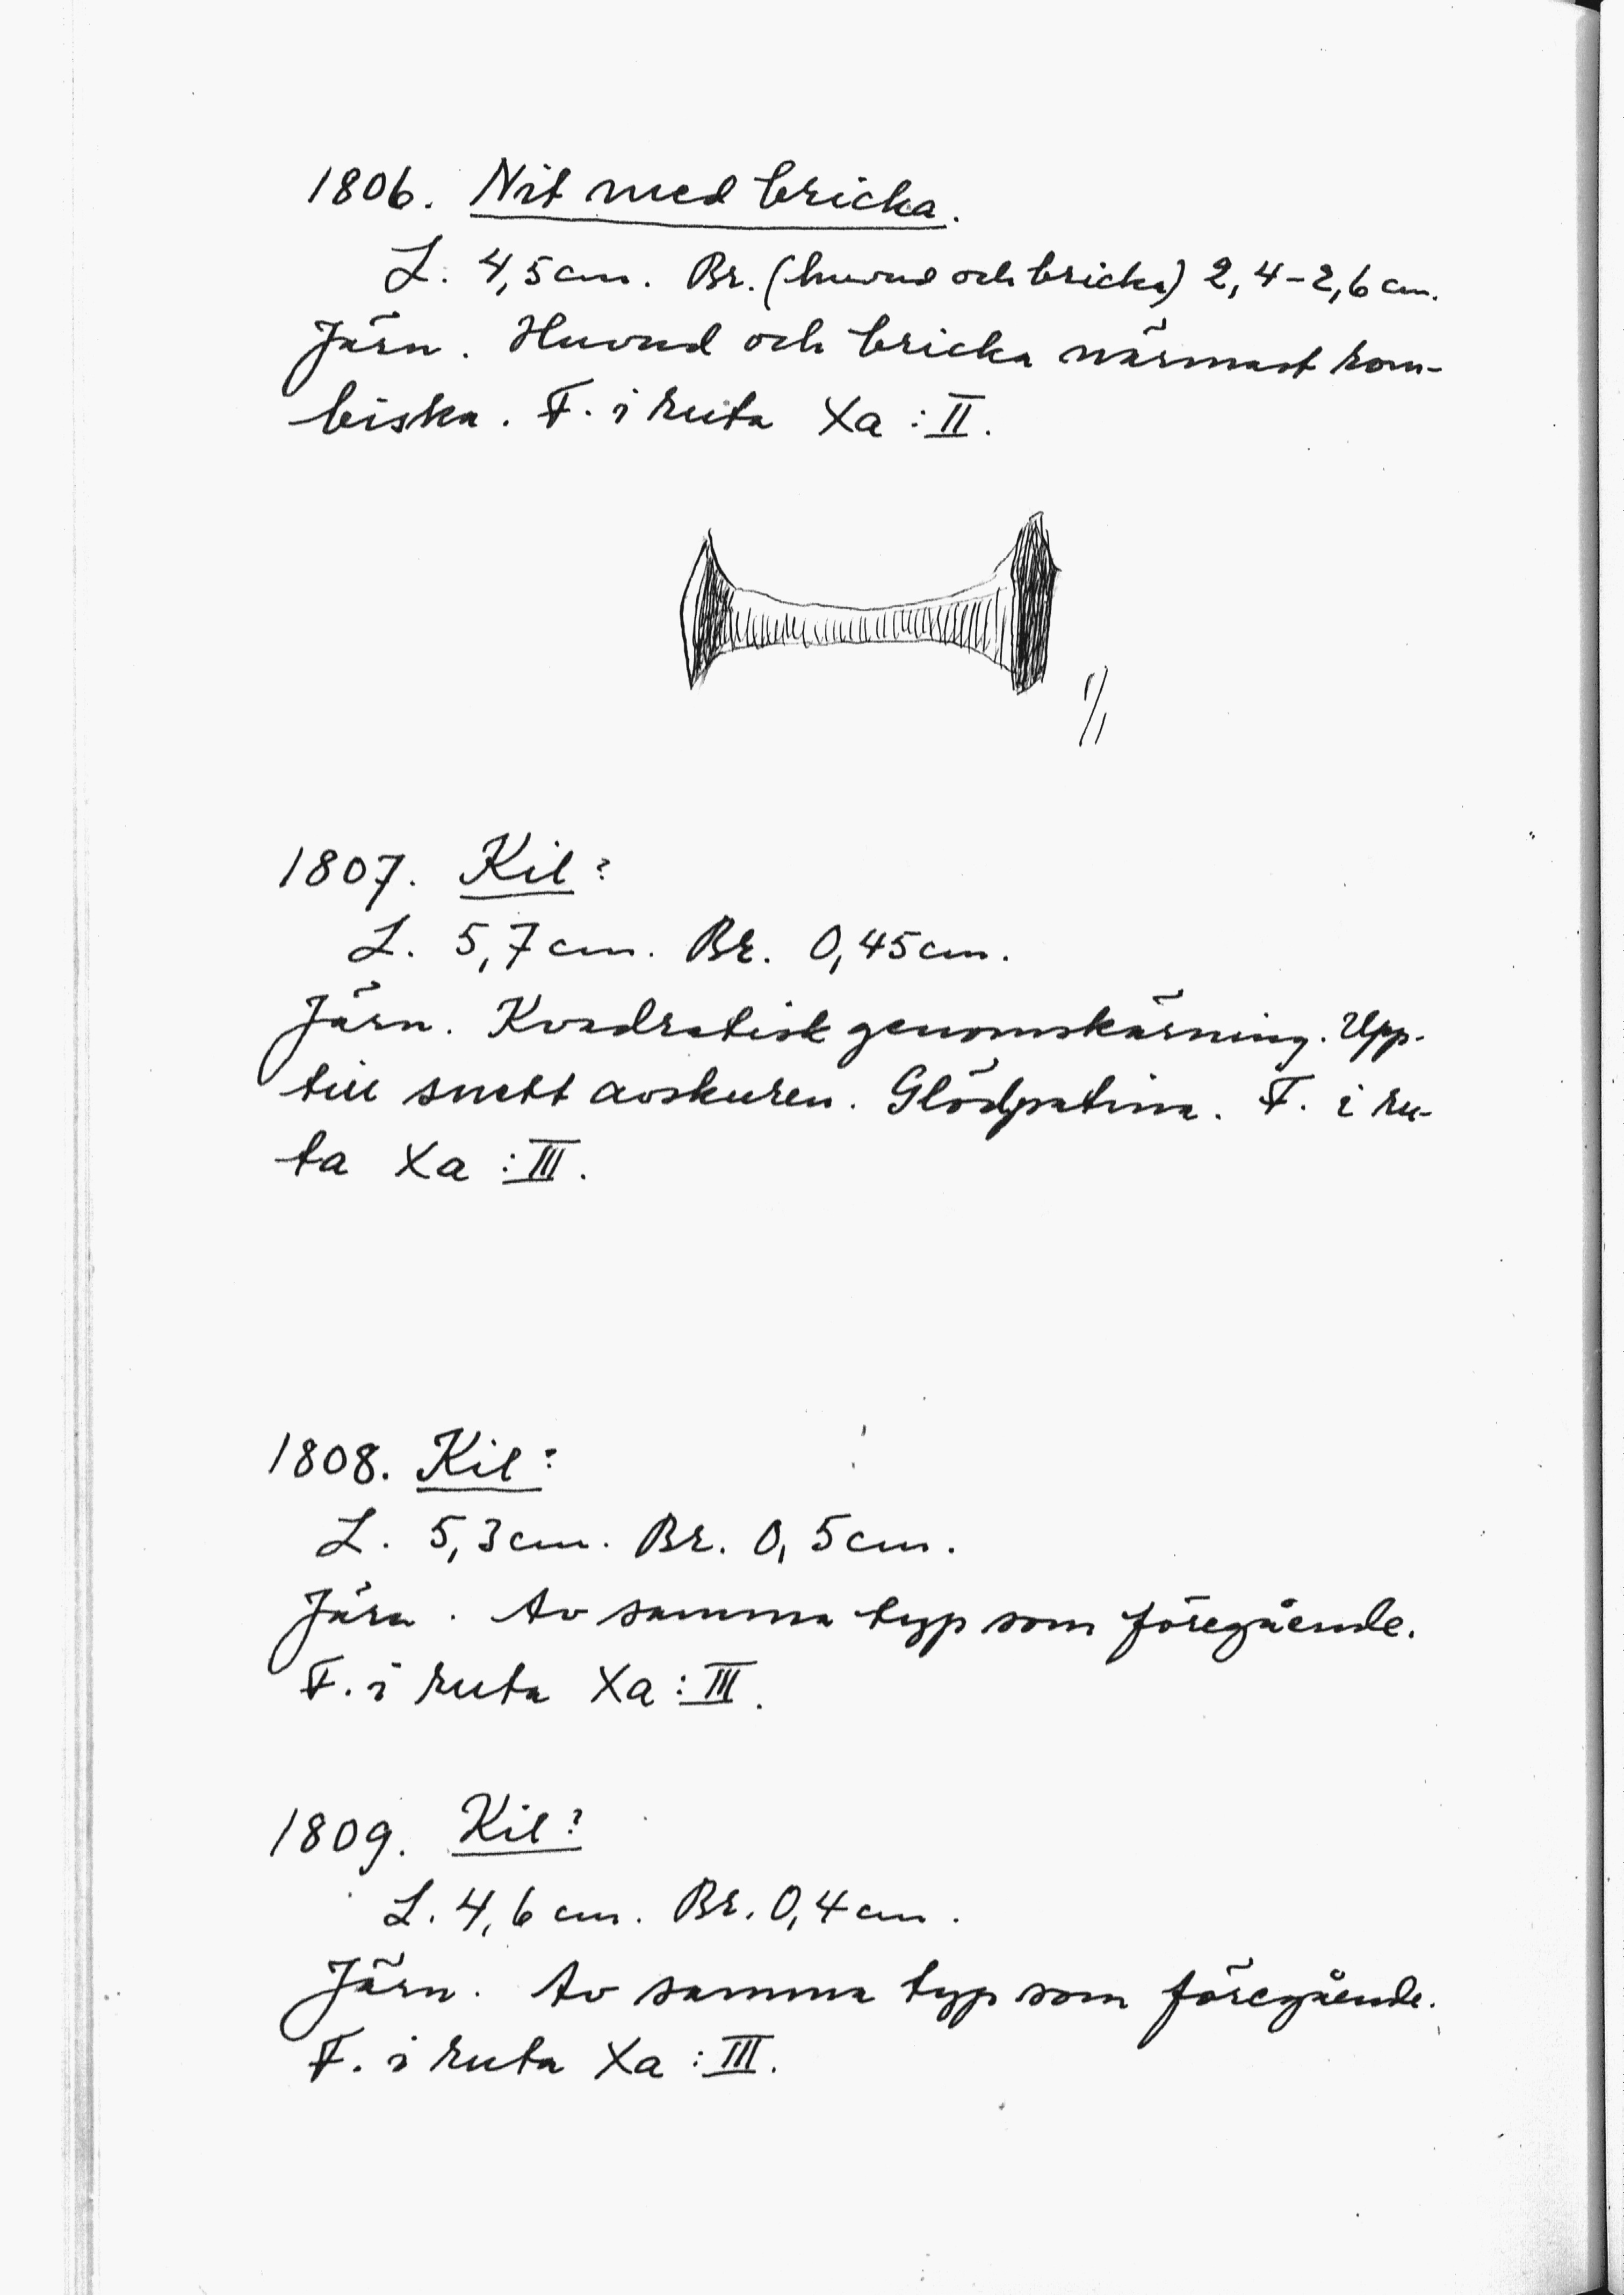 1806. Nit med bricka.
L. 4,5 cm. Br. (huvud och bricka) 2,4-2,6 cm.
Järn. Huvud och bricka närmast rom-
biska. F. i ruta Xa : II.
1/1
1807. Kil?
L. 5,7 cm. Br. 0,45 cm.
Järn. Kvadratisk genomskärning. Upp-
till snett avskuren. Glödpatina. F. i ru-
ta Xa : III.
1808. Kil?
L. 5,3 cm. Br. 0,5 cm.
Järn. Av samma typ som föregående.
F. i ruta Xa : III.
1809. Kil?
L. 4,6 cm. Br. 0,4 cm.
Järn. Av samma typ som föregående.
F. i ruta Xa : III.